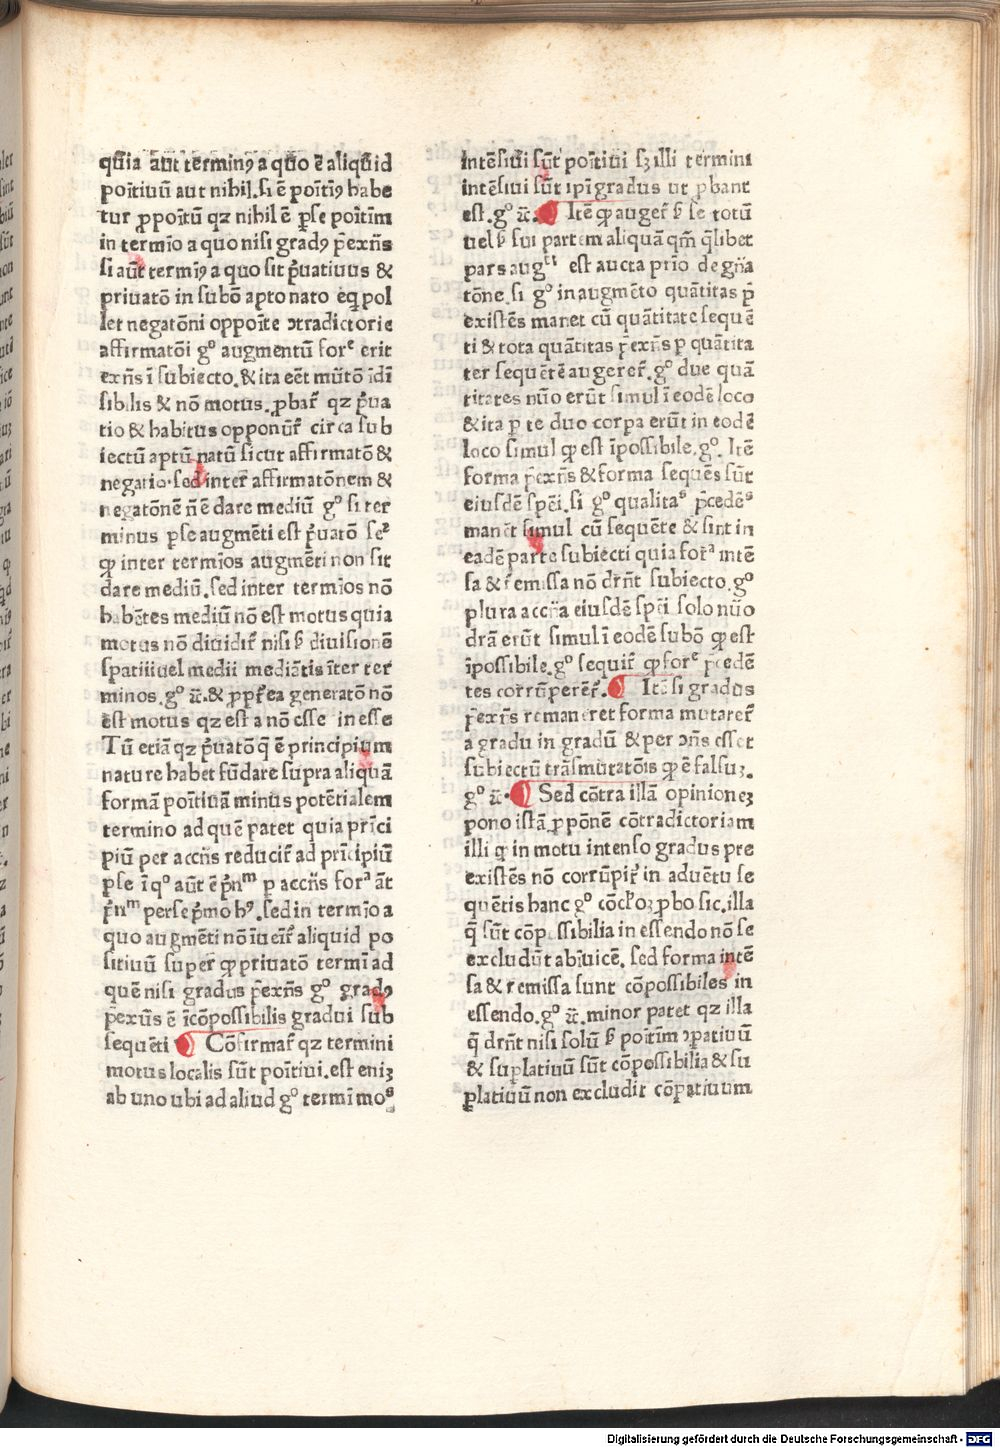 quia aut terminꝰ a quo ē aliquid
poītiuū aut nihil. si ē poītiꝰ habe
tur ꝓpoītū qz nihil ē ꝑse poītīm
in termīo a quo nisi gradꝰ p̄exn̄s
si aūt termīꝰ a quo sit p̄uatiuus &
priuatō in subō apto nato eq̄ pol
let negatōni oppoīte ↄtradictorie
affirmatōi gº augmentū forᵉ erit
exn̄s ī subiecto. & ita eēt mūtō īdī
sibilis & nō motus. ꝓbaꝛ̄ qz p̄ua
tio & habitus opponūꝛ̄ circa sub
iectū aptū natū sicut affirmatō &
negatio. sed inteꝛ̄ affirmatōnem &
negatōnē n̄ ē dare mediū gº si ter
minus ꝑse augmēti est p̄uatō
ꝙ inter termīos augmēti non sit
dare mediū. sed inter termīos nō
habētes mediū nō est motus quia
motus nō diuidiꝛ̄ nisi ẜ diuisionē
spatii uel medii mediātis īter ter
minos. gº &c. & ꝓpꝛ̄ea generatō nō
est motus qz est a nō esse in esse
Tū etiā qz p̄uatō q̄ ē principium
nature habet fūdare supra aliquā
formā poītiuā minus potētialem
termino ad quē patet quia prīci
piū per accn̄s reduciꝛ̄ ad prīcipiū
ꝑse ī qº aūt ē p̄nᵐ ꝑ accn̄s forᵃ āt
p̄nᵐ perse p̄mo hꝰ. sed in termīo a
quo augmēti nō īueīꝛ̄ aliquid po
sitiuū super ꝙ priuatō termī ad
quē nisi gradus p̄exn̄s gº gradꝰ
pexn̄s ē īcōpossibilis gradui sub
sequēti ¶ Cōfirmaꝛ̄ qz termini
motus localis sūt poītiui. est enīꝫ
ab uno ubi ad aliud gº termī moˢ
intēsiui sūt poītiui sꝫ illi termini
intēsiui sūt ipī gradus ut ꝓbant
est. gº &c. ¶ Itē ꝙ augeꝛ̄ ẜ se totū
uel ẜ sui partem aliquā qm̄ q̄libet
pars augᵗⁱ est aucta prīo de gn̄a
tōne. si gº in augmēto quātitas p̄
existēs manet cū quātitate sequē
ti & tota quātitas p̄exn̄s ꝑ quātita
tez sequētē augereꝛ̄. gº due quā
titates nūo erūt simul ī eodē loco
& ita ꝑ te duo corpa erūt in eodē
loco simul ꝙ est īpossibile. gº. Itē
forma p̄exn̄s & forma sequēs sūt
eiusdē spēi. si gº qualitaˢ p̄cedēˢ
manet simul cū sequēte & sint in
eadē parte subiecti quia forᵃ intē
sa & remissa nō drn̄t subiecto. gº
plura accn̄a eiusdē spēi solo nūo
drā erūt simul ī eodē subō ꝙ est
īpossibile. gº sequiꝛ̄ ꝙ forᵉ p̄cedē
tes corrūpereꝛ̄. ¶ Itē si gradus
p̄exn̄s remaneret forma mutareꝛ̄
a gradu in gradū & per ↄn̄s esset
subiectū trāsmutatōis ꝙ ē falsuꝫ.
gº &c. ¶ Sed cōtra illā opinioneꝫ
pono istā ꝓpōnē cōtradictoriam
illi ꝙ in motu intenso gradus pre
existēs nō corrūpiꝛ̄ in aduētu se
quētis hanc gº ꝓbo sic. illa
q̄ sūt cōpossibilia in essendo nō se
excludūt abīuicē. sed forma intē
sa & remissa sunt cōpossibiles in
essendo. gº &c. minor patet qz illa
q̄ drn̄t nisi solū ẜ poītīm ↄꝑatiuū
& suꝑlatiuū sūt cōpossibilia & su
ꝑlatiuū non excludit cōꝑatiuum
Digitalisierung gefördert durch die Deutsche Forschungsgemeinschaft - DFG